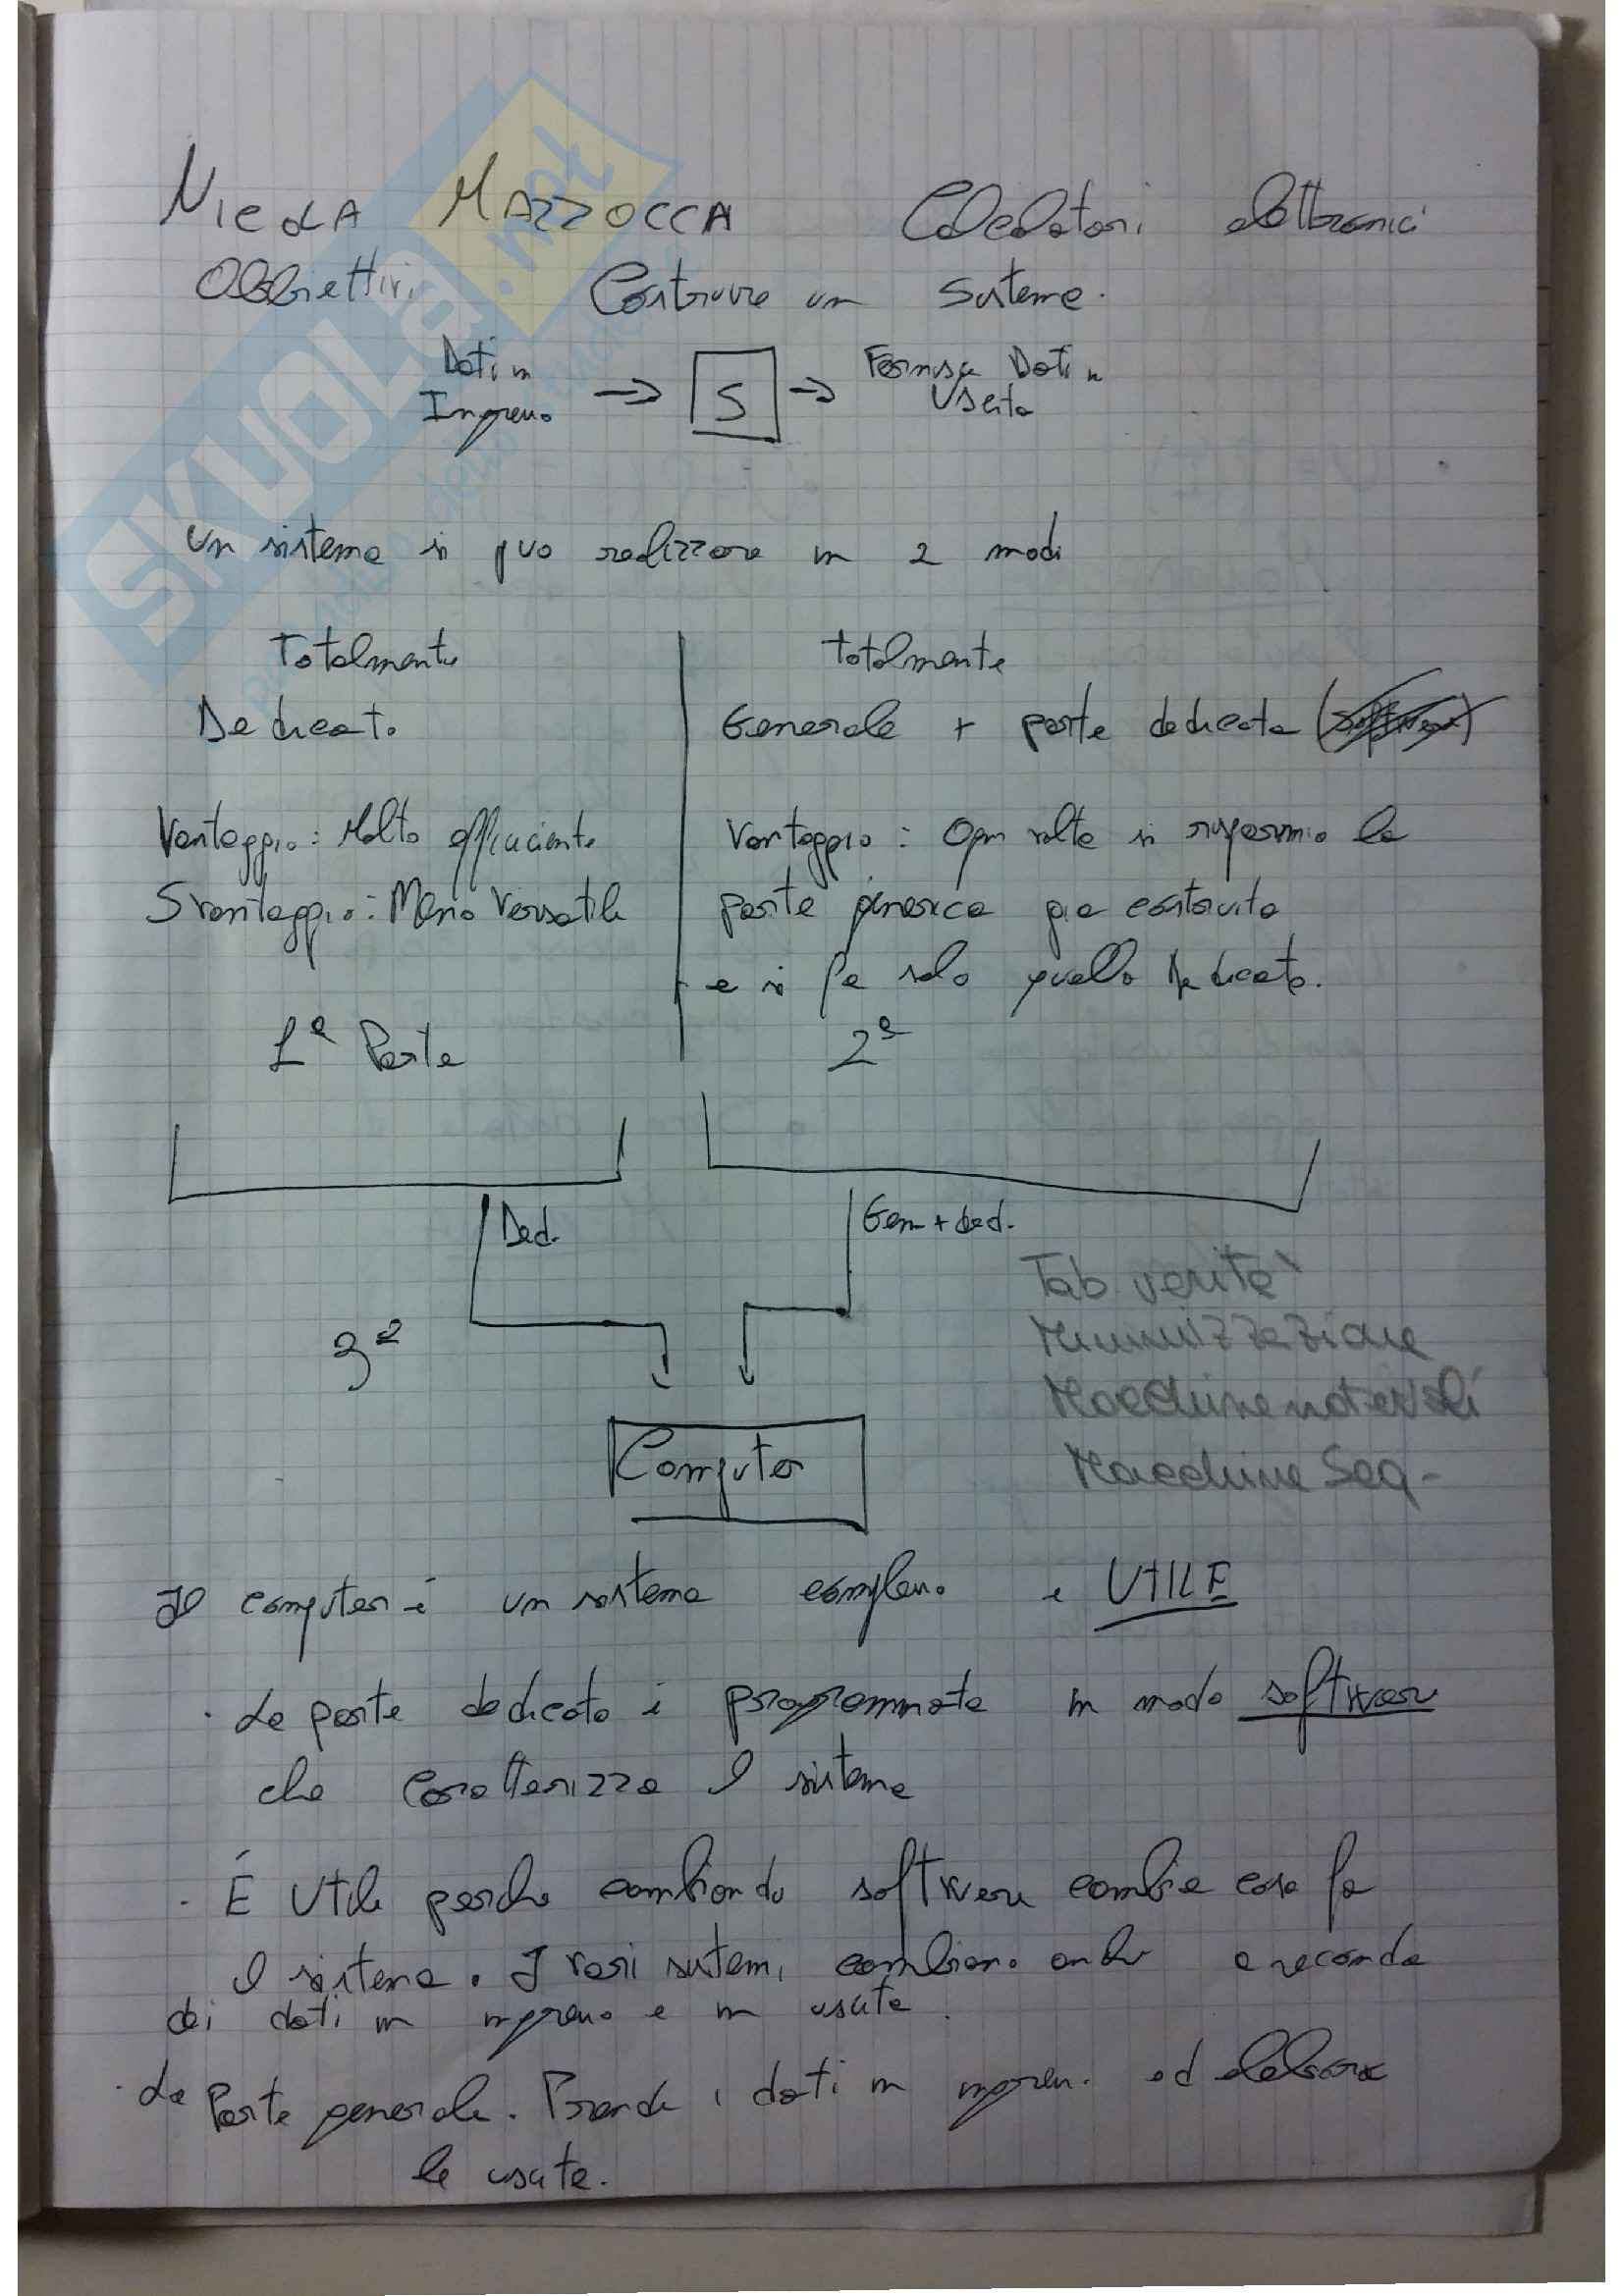 Nicola MAZZOCCA Calcolatori elettronici
Obbiettivi Costruire un sistema.
Dati in
Ingresso → S → Fornisce Dati in
Uscita
Un sistema si puo realizzare in 2 modi
Totalmente
Dedicato
Vantaggio: Molto efficiente
Svantaggio: Meno Versatile
1ª Parte
totalmente
Generale + parte dedicata
Vantaggio: Ogni volta si risparmia la
parte generica gia costruita
e si fa solo quello Dedicato.
2ª
Ded.
Gen + ded.
3ª
Computer
Tab verità
Minimizzazione
Macchine notevoli
Macchine Seq-
Il computer è un sistema complesso e UTILE
. La parte dedicata è programmata in modo software
che caratterizza il sistema
. È Utile perche cambiando software cambia cosa fa
il sistema. I vari sistemi cambiano anche a seconda
dei dati in ingresso e in uscita.
. La Parte generale. Prende i dati in ingresso ed elabora
le uscite.
SKUOLA.net